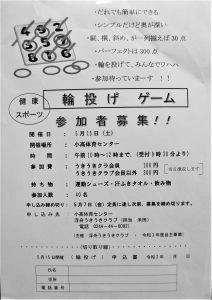 ・だれでも簡単にできる
・シンプルだけど奥が深い
・縦、横、斜め、が一列揃えば 30 点
・パーフェクトは 300 点
・輪を投げて、みんなでワハハ
・参加待っています！！
健康
スポーツ
輪投げ ゲーム
参加者募集！！
開催日 ： 5月15日（土）
場所 ： 小高体育センター
時間 ： 午前10時～12時まで、（受付9時30分より）
参加費 ： うきうきクラブ会員 100円
うきうきクラブ会員以外 300円
持ち物 ： 運動シューズ・汗ふきタオル・飲み物
参加人数 ： 40名
申し込み締め切り ： 5月7日（金）定員に達し次第、募集を締め切ります。
申し込み先 小高体育センター
浮舟うきうきクラブ
電話 0244-44-
主催 ： 浮舟うきうきクラブ
（切り取り線）
5月15日開催（輪投げ）申込書 令和3年 月 日
氏名
住所
電話番号